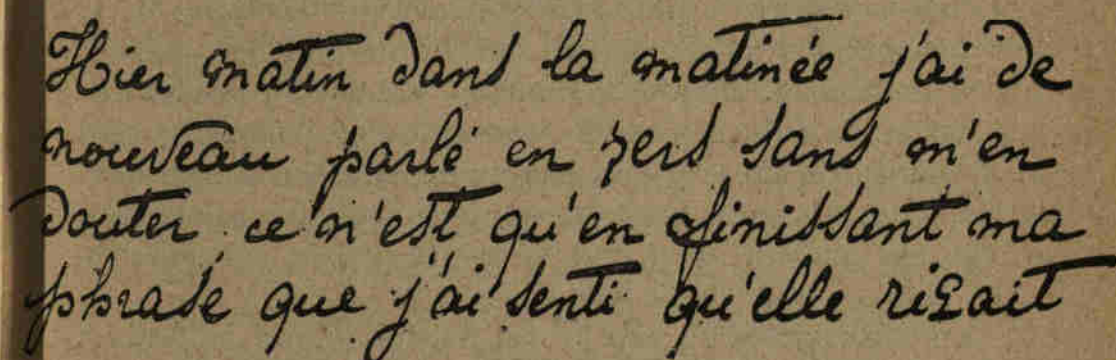 Hier matin dans la matinée j'ai de
nouveau parlé en vers sans m'en
douter ce n'est qu'en finissant ma
phrase que j'ai senti qu'elle rizait